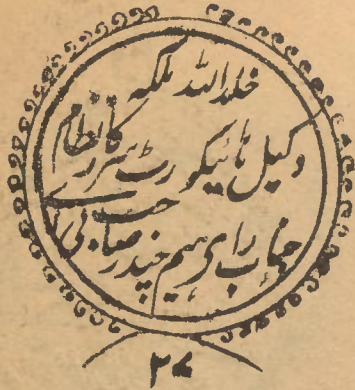 خلد اللہ ملکہ
وکیل ہائیکورٹ سرکار نظام
جناب رای ہیم چندر صاحب بی اے
۲۷